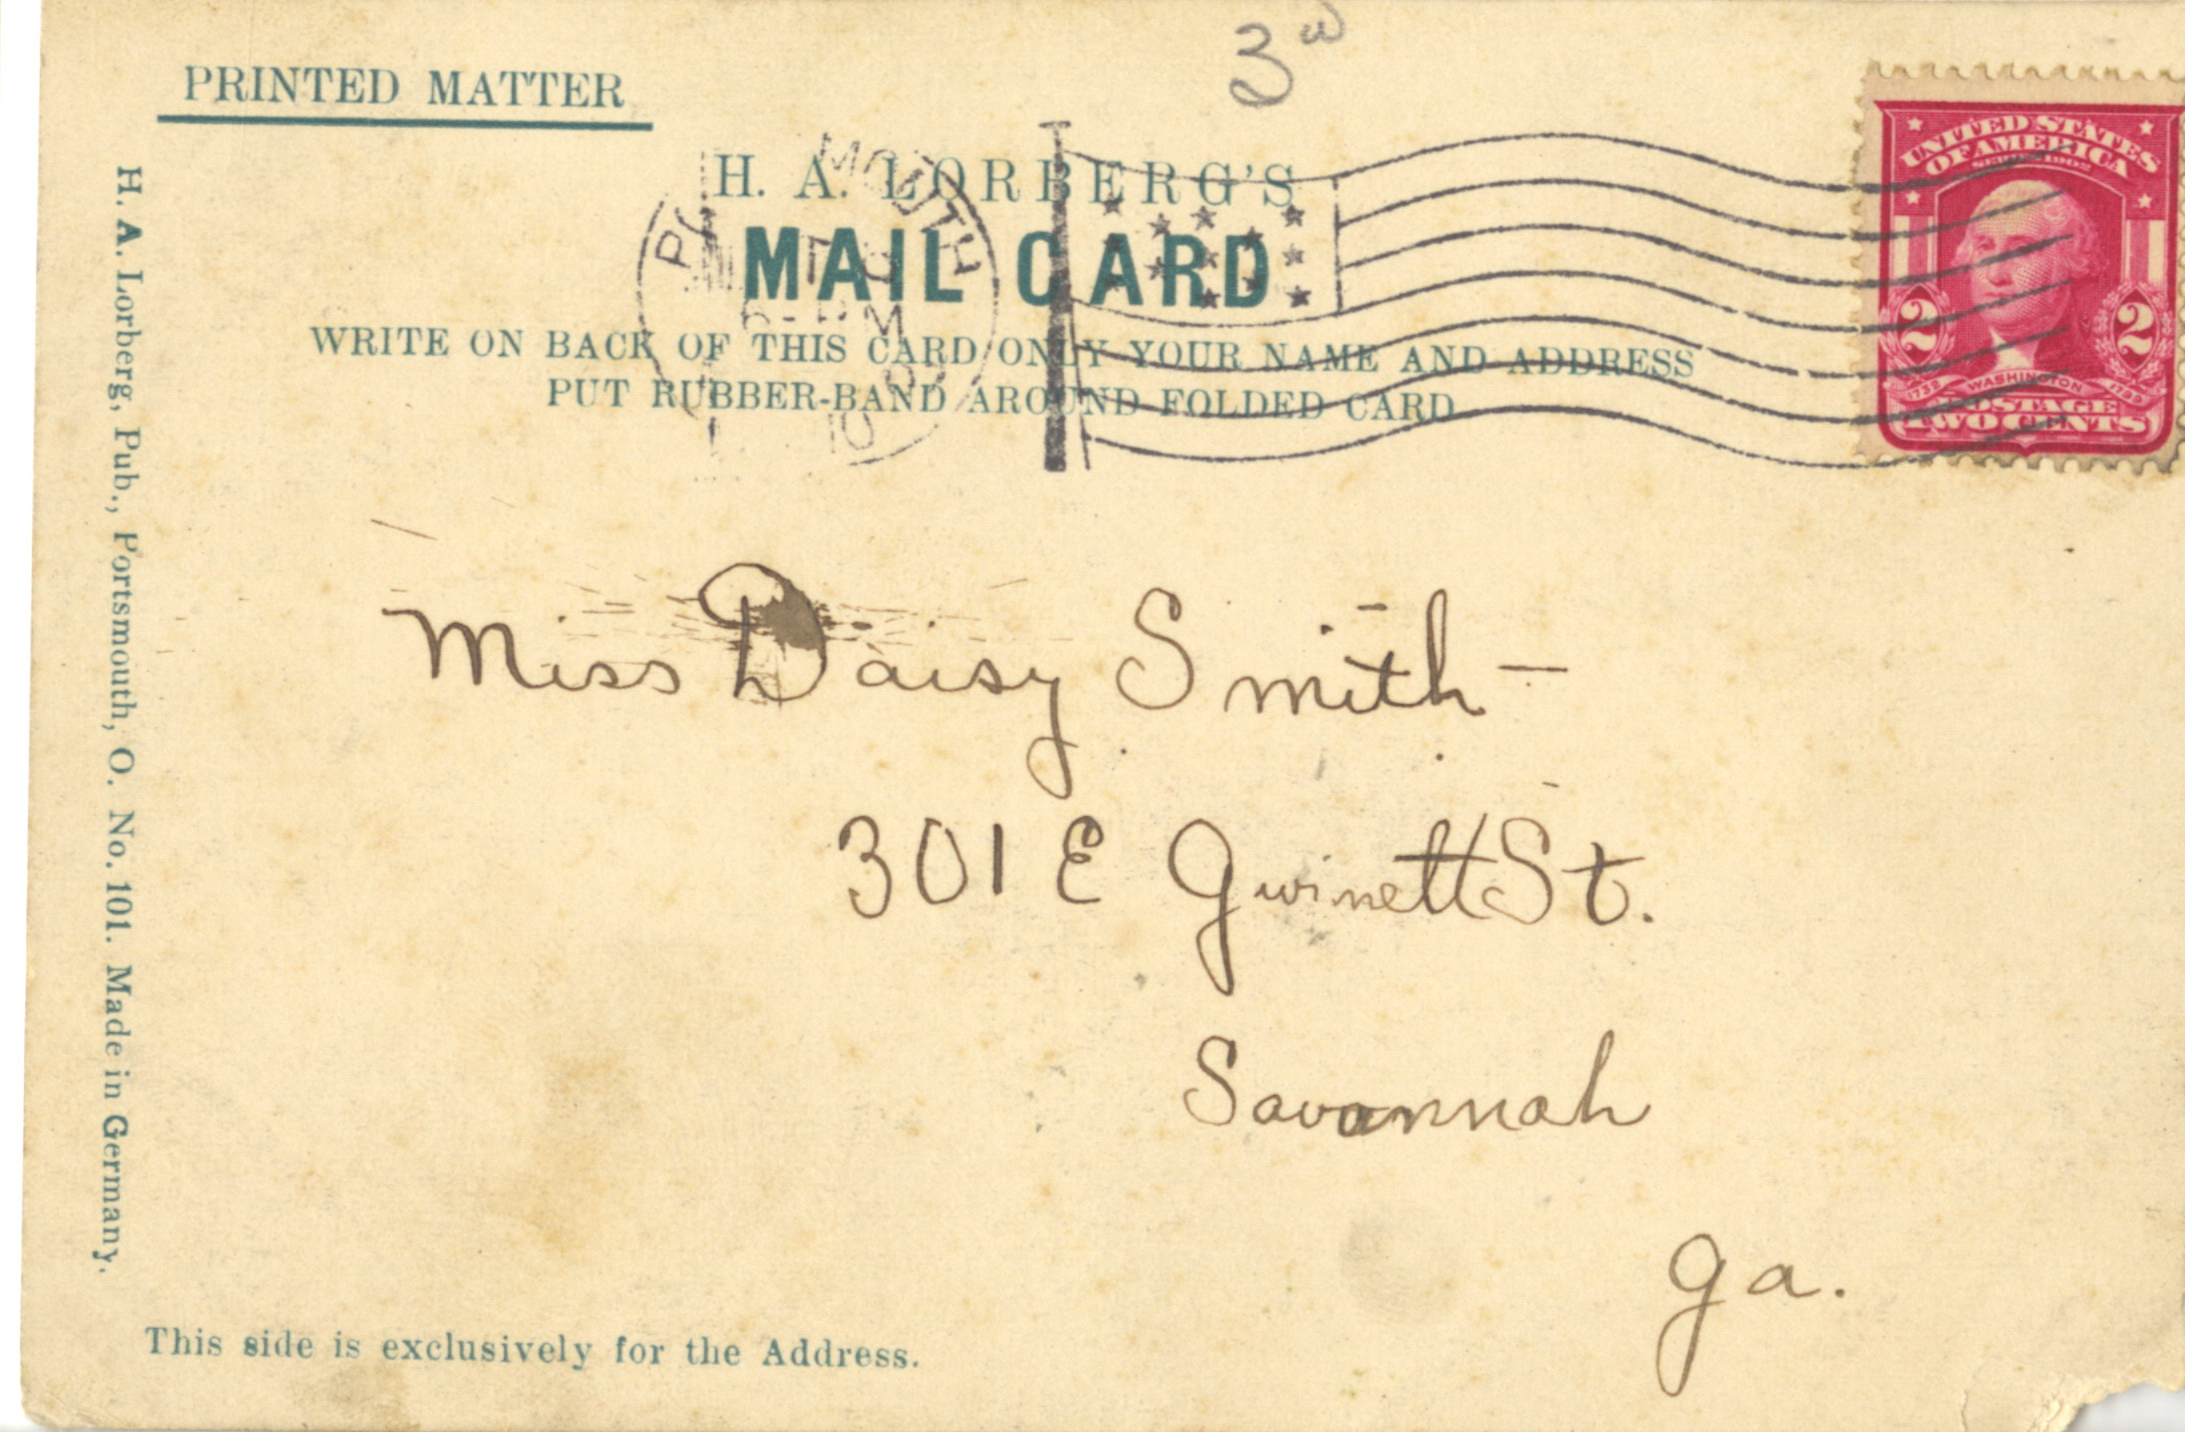 3
PRINTED MATTER
H. A. LORBERG'S
MAIL CARD
WRITE ON BACK OF THIS CARD ONLY YOUR NAME AND ADDRESS
PUT RUBBER-BAND AROUND FOLDED CARD
MOUTH
UNITED STATES
OF AMERICA
SERIES 1902
2 2
1732 WASHINGTON 1799
POSTAGE
TWO CENTS
Miss Daisy Smith -
301 E Gwinett St.
Savannah
Ga.
H. A. Lorberg, Pub., Portsmouth, O. No. 101. Made in Germany.
This side is exclusively for the Address.